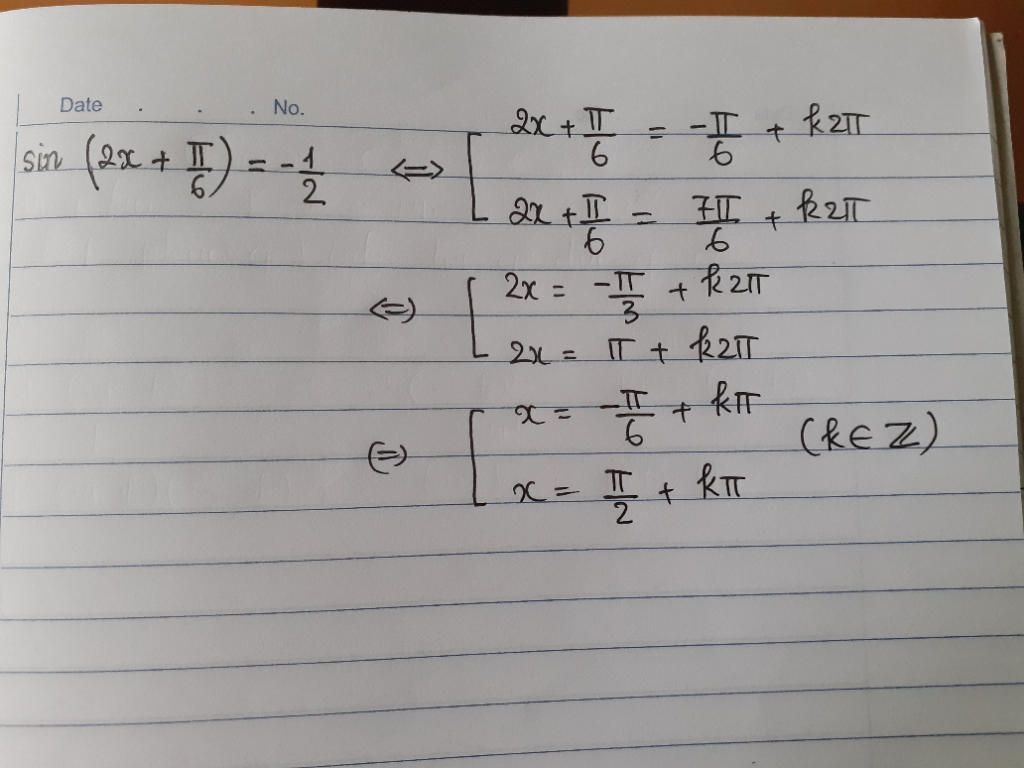 Date . . . No.
sin (2x + π/6) = -1/2 <=> [ 2x + π/6 = -π/6 + k2π
2x + π/6 = 7π/6 + k2π
<=> [ 2x = -π/3 + k2π
2x = π + k2π
<=> [ x = -π/6 + kπ
(k ∈ ℤ)
x = π/2 + kπ